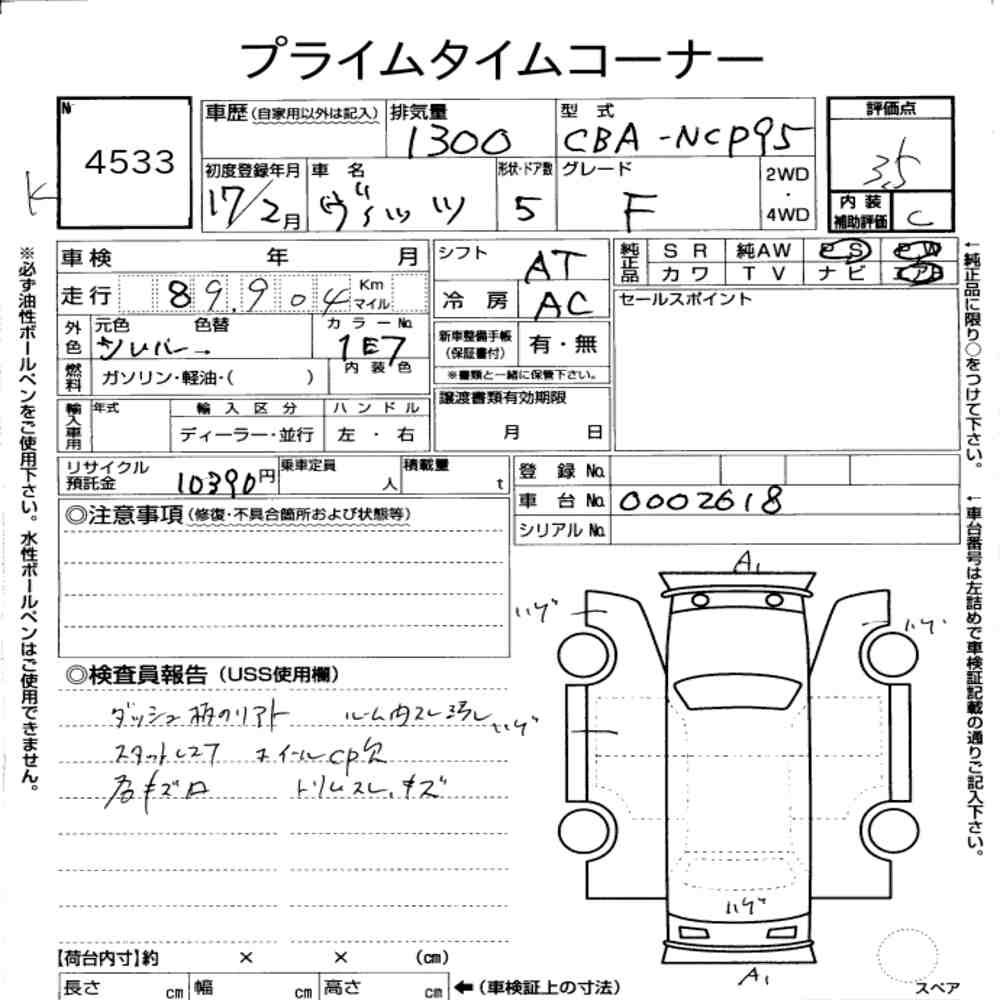 プライムタイムコーナー
№
4533
車歴(自家用以外は記入)
排気量
1300
型 式
CBA-NCP95
初度登録年月
17/2月
車 名
ヴィッツ
形状・ドア数
5
グレード
F
2WD
・
4WD
評価点
3.5
内 装
補助評価
C
※必ず油性ボールペンをご使用下さい。水性ボールペンはご使用できません。
車検 年 月
走行 89,904 Km マイル
外色
元色 色替
シルバー→
カラー№
1E7
燃料
ガソリン・軽油・( )
内 装 色
輸入車用
年式
輸 入 区 分
ディーラー・並行
ハ ン ド ル
左 ・ 右
シフト
AT
冷 房
AC
新車整備手帳
(保証書付)
有・無
※書類と一緒に保管下さい。
譲渡書類有効期限
月 日
純正品
S R 純AW P S P W
カワ T V ナビ エアB
セールスポイント
←純正品に限り○をつけて下さい。
リサイクル
預託金
10390円
乗車定員
人
積載量
t
登 録 №
車 台 №
0002618
シリアル №
←車台番号は左詰めで車検証記載の通りご記入下さい。
◎注意事項(修復・不具合箇所および状態等)
◎検査員報告(USS使用欄)
ルーム内スレ汚レ
ホイールCP欠
トリムスレ、キズ
A1
ハゲ
ハゲ
ハゲ
ハゲ
A1
スペア
【荷台内寸】約 × × (cm)
長さ cm 幅 cm 高さ cm ←(車検証上の寸法)